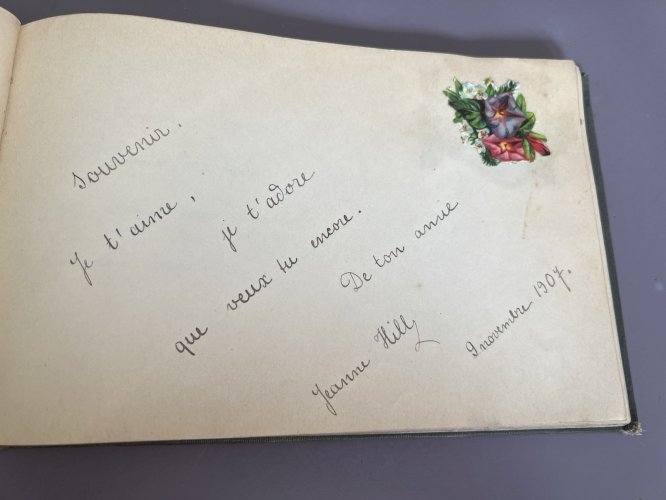 Souvenir.
Je t'aime,
je t'adore
que veux tu encore.
De ton amie
Jeanne Hill
9 novembre 1907.